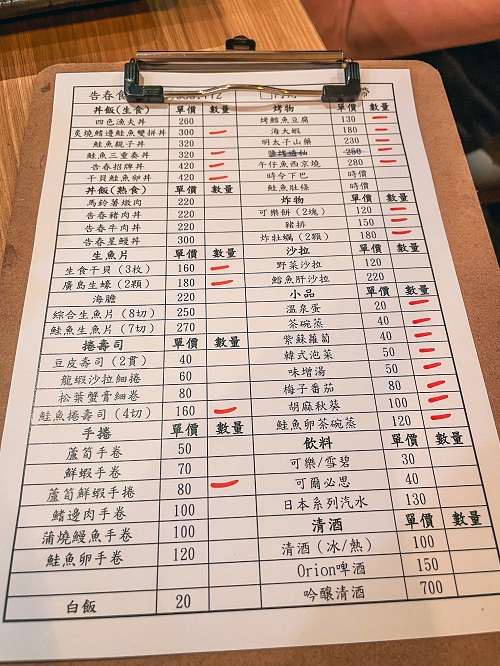 告春食
丼飯(生食) 單價 數量
四色漁夫丼 260
炙燒鰭邊鮭魚雙拼丼 300
鮭魚親子丼 320
鮭魚三重奏丼 320
告春招牌丼 420
干貝鮭魚卵丼 420
丼飯(熟食) 單價 數量
馬鈴薯燉肉 220
告春豬肉丼 220
告春牛肉丼 220
告春星鰻丼 300
生魚片 單價 數量
生食干貝(3枚) 160
廣島生蠔(2顆) 180
海膽 220
綜合生魚片(8切) 250
鮭魚生魚片(7切) 270
捲壽司 單價 數量
豆皮壽司(2貫) 40
龍蝦沙拉細捲 60
松葉蟹膏細卷 80
鮭魚捲壽司(4切) 160
手捲 單價 數量
蘆筍手卷 50
鮮蝦手卷 70
蘆筍鮮蝦手捲 80
鰭邊肉手卷 100
蒲燒鰻魚手卷 100
鮭魚卵手卷 120
白飯 20
烤物 單價 數量
烤鱈魚豆腐 130
烤大蝦 180
明太子山藥 230
250
午仔魚西京燒 280
時令下巴 時價
鮭魚肚條 時價
炸物 單價 數量
可樂餅(2塊) 120
豬排 150
炸牡蠣(2顆) 180
沙拉 單價 數量
野菜沙拉 120
鱈魚肝沙拉 220
小品 單價 數量
溫泉蛋 20
茶碗蒸 40
紫蘇蘿蔔 40
韓式泡菜 50
味增湯 50
梅子番茄 80
胡麻秋葵 100
鮭魚卵茶碗蒸 120
飲料 單價 數量
可樂/雪碧 30
可爾必思 40
日本系列汽水 130
清酒 單價 數量
清酒(冰/熱) 100
Orion啤酒 150
吟釀清酒 700